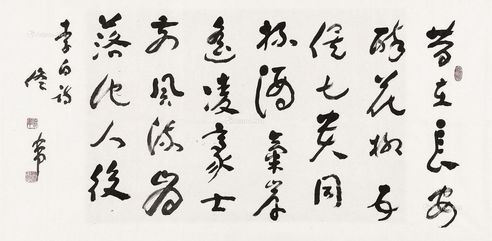 昔在長安
醉花柳五
侯七貴同
杯酒氣岸
遙凌豪士
前風流肯
落他人後
李白詩